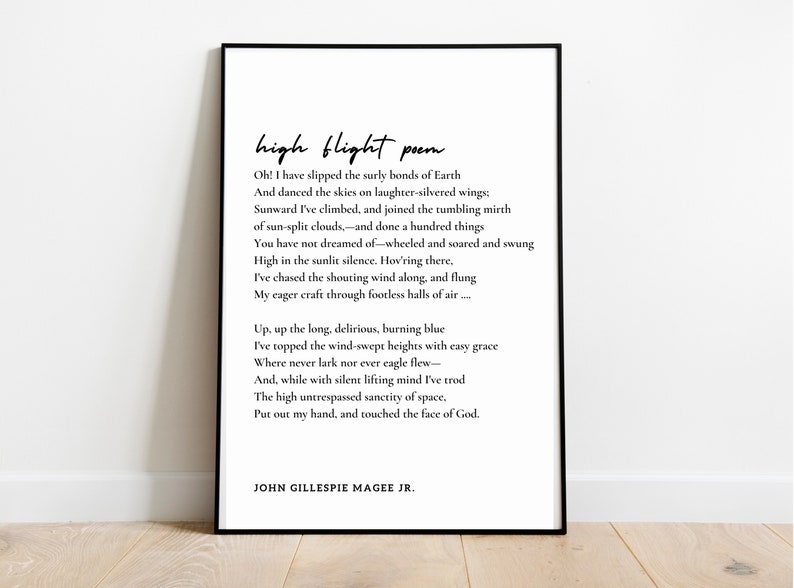 high flight poem
Oh! I have slipped the surly bonds of Earth
And danced the skies on laughter-silvered wings;
Sunward I've climbed, and joined the tumbling mirth
of sun-split clouds,—and done a hundred things
You have not dreamed of—wheeled and soared and swung
High in the sunlit silence. Hov'ring there,
I've chased the shouting wind along, and flung
My eager craft through footless halls of air ....

Up, up the long, delirious, burning blue
I've topped the wind-swept heights with easy grace
Where never lark nor ever eagle flew—
And, while with silent lifting mind I've trod
The high untrespassed sanctity of space,
Put out my hand, and touched the face of God.

JOHN GILLESPIE MAGEE JR.